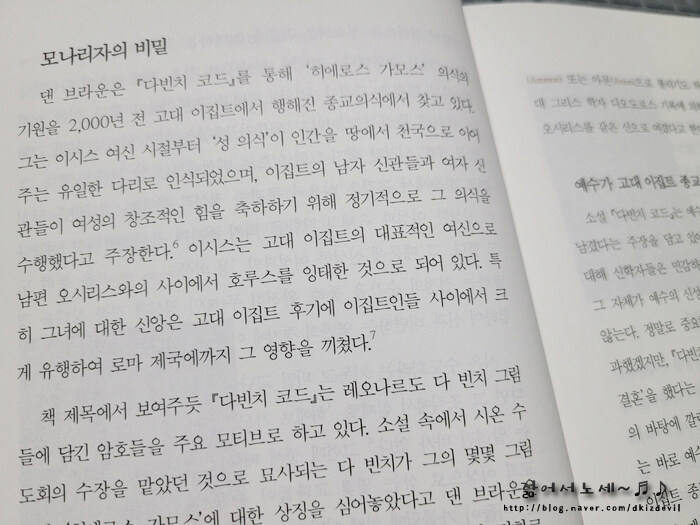 모나리자의 비밀
댄 브라운은 『다빈치 코드』를 통해 '히에로스 가모스' 의식의
기원을 2,000년 전 고대 이집트에서 행해진 종교의식에서 찾고 있다.
그는 이시스 여신 시절부터 '성 의식'이 인간을 땅에서 천국으로 이어
주는 유일한 다리로 인식되었으며, 이집트의 남자 신관들과 여자 신
관들이 여성의 창조적인 힘을 축하하기 위해 정기적으로 그 의식을
수행했다고 주장한다.6 이시스는 고대 이집트의 대표적인 여신으로
남편 오시리스와의 사이에서 호루스를 잉태한 것으로 되어 있다. 특
히 그녀에 대한 신앙은 고대 이집트 후기에 이집트인들 사이에서 크
게 유행하여 로마 제국에까지 그 영향을 끼쳤다.7
책 제목에서 보여주듯 『다빈치 코드』는 레오나르도 다 빈치 그림
들에 담긴 암호들을 주요 모티브로 하고 있다. 소설 속에서 시온 수
도회의 수장을 맡았던 것으로 묘사되는 다 빈치가 그의 몇몇 그림
가모스'에 대한 상징을 심어놓았다고 댄 브라운은
또는 아몬
대 그리스 학자 디오도로스 기록에
오시리스를 같은 신으로 여겼다고 한
예수가 고대 이집트 종교
소설 『다빈치 코드』는 예수
남겼다는 주장을 담고 있
대해 신학자들은 민감하
그 자체가 예수의 신성
않는다. 정말로 중요
과했겠지만, 『다빈치
결혼'을 했다는
의 바탕에 깔
는 바로 예수
이집트 종
젊어서노세~♬♪
http://blog.naver.com/dkizdevil